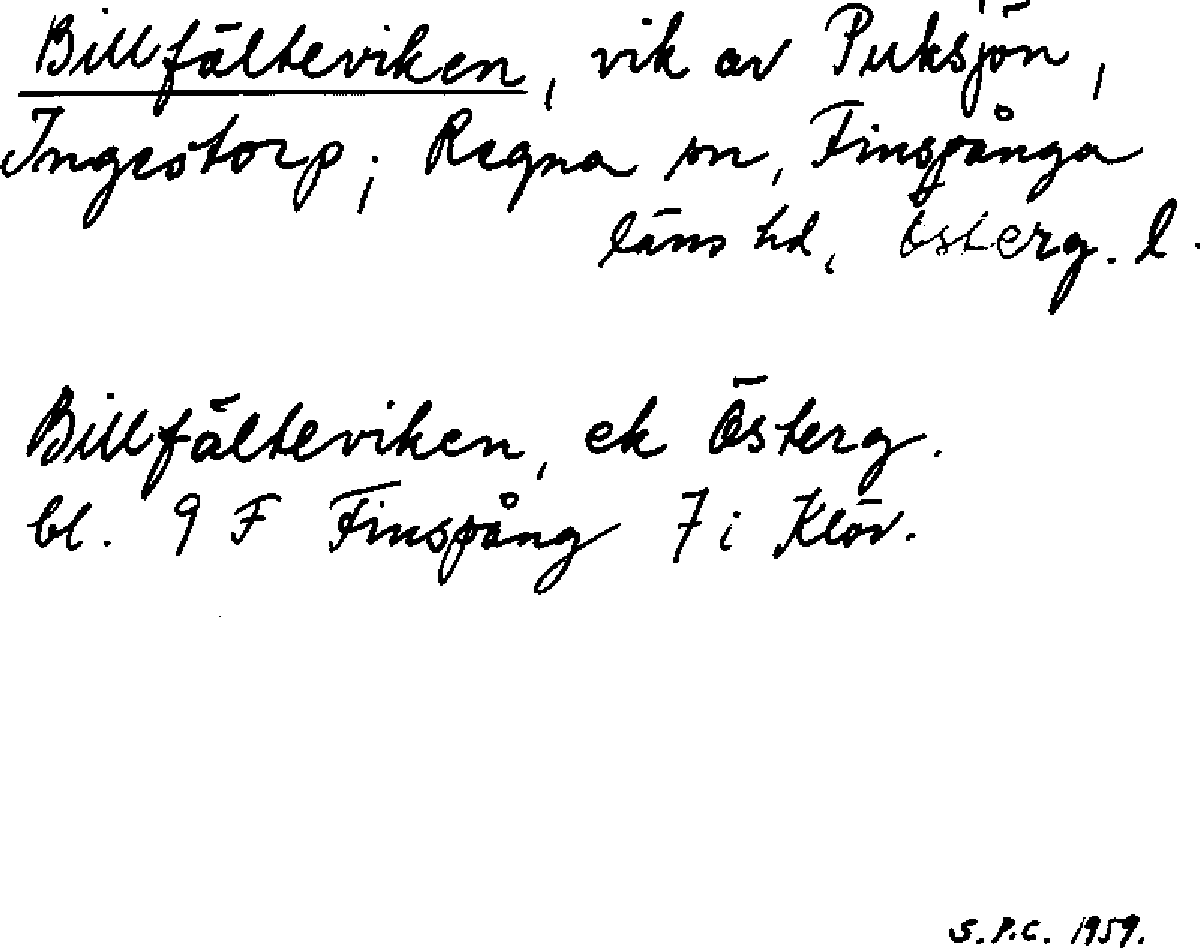 Billfälteviken, vik av Puksjön,
Ingestorp; Regna sn, Finspånga
läns hd, Österg. l.
Billfälteviken, ek Österg.
bl. 9 F Finspång 7 i Klöv.
S.P.C. 1959.